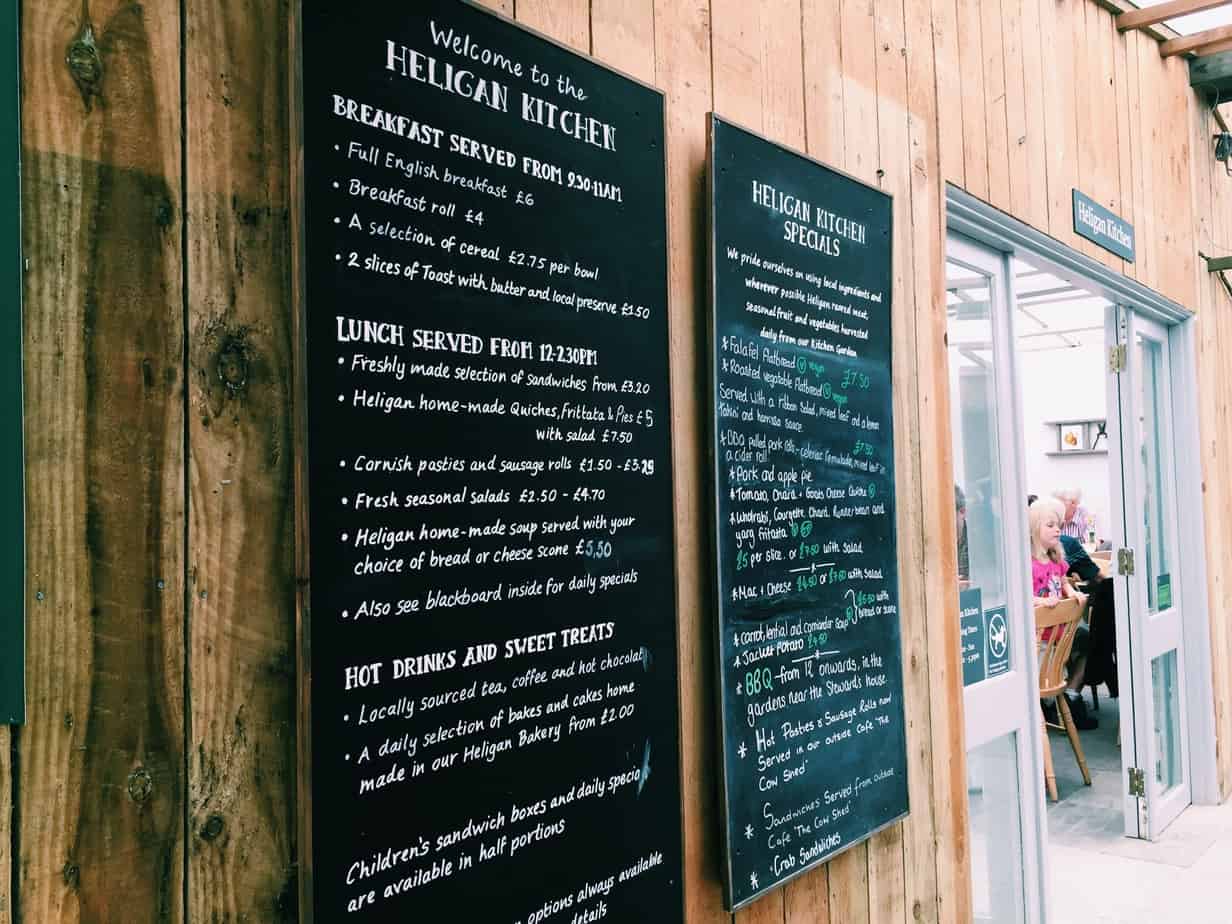 Welcome to the
HELIGAN KITCHEN
BREAKFAST SERVED FROM 9.30-11AM
• Full English breakfast £6
• Breakfast roll £4
• A selection of cereal £2.75 per bowl
• 2 slices of Toast with butter and local preserve £1.50
LUNCH SERVED FROM 12-2.30PM
• Freshly made selection of sandwiches from £3.20
• Heligan home-made Quiches, Frittata & Pies £5
with salad £7.50
• Cornish pasties and sausage rolls £1.50 - £3.25
• Fresh seasonal salads £2.50 - £4.70
• Heligan home-made soup served with your
choice of bread or cheese scone £5.50
• Also see blackboard inside for daily specials
HOT DRINKS AND SWEET TREATS
• Locally sourced tea, coffee and hot chocolat
• A daily selection of bakes and cakes home
made in our Heligan Bakery from £2.00
Children's sandwich boxes and daily specia
are available in half portions
options always available
details
HELIGAN KITCHEN
SPECIALS
We pride ourselves on using local ingredients and
wherever possible Heligan reared meat,
seasonal fruit and vegetables harvested
daily from our Kitchen Garden
* Falafel flatbread V vegan
* Roasted vegetable flatbread V vegan £7.50
Served with a ribbon Salad, mixed leaf and a lemon
tahini and harrissa sauce
* BBQ pulled pork rolls - celeriac remoulade, mixed leaf in £7.50
a cider roll
* Pork and apple pie
* Tomato, Chard + Goats Cheese Quiche V
* Kholrabi, Courgette Chard, Runner bean and
yarg frittata V GF
£5 per slice. or £7.50 with Salad
* Mac + Cheese £4.50 or £7.50 with salad
* Carrot, lential and coriander Soup £5.50 with
bread or scone
* Jacket Potato £4.50
* BBQ - from 12 onwards, in the
gardens near the Steward's house.
* Hot Pasties & Sausage Rolls now
Served in our outside Cafe 'The
Cow Shed'
* Sandwiches Served from outside
Cafe 'The Cow Shed'
* Crab Sandwiches
Heligan Kitchen